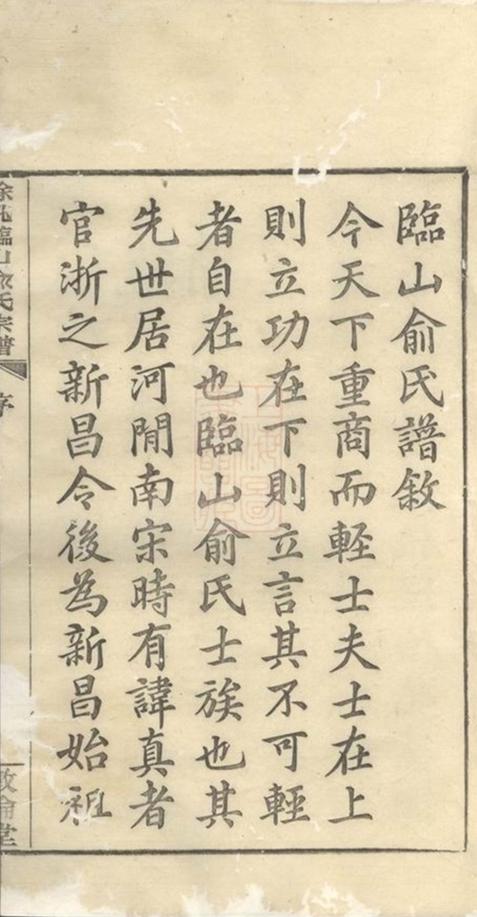 臨山俞氏譜敘
今天下重商而輕士夫士在上
則立功在下則立言其不可輕
者自在也臨山俞氏士族也其
先世居河閒南宋時有諱真者
官浙之新昌令後為新昌始祖
餘姚臨山俞氏宗譜
序
敦倫堂